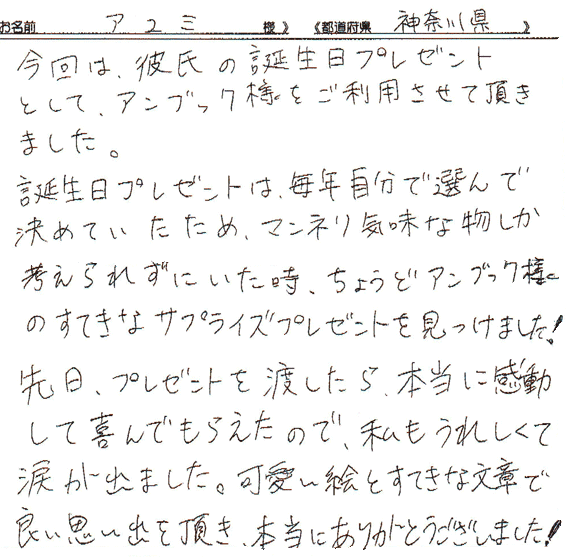 お名前 アユミ 様》 《都道府県 神奈川県 》
今回は、彼氏の誕生日プレゼント
として、アンブック様をご利用させて頂き
ました。
誕生日プレゼントは、毎年自分で選んで
決めていたため、マンネリ気味な物しか
考えられずにいた時、ちょうどアンブック様
のすてきなサプライズプレゼントを見つけました!
先日、プレゼントを渡したら、本当に感動
して喜んでもらえたので、私もうれしくて
涙が出ました。可愛い絵とすてきな文章で
良い思い出を頂き、本当にありがとうございました!